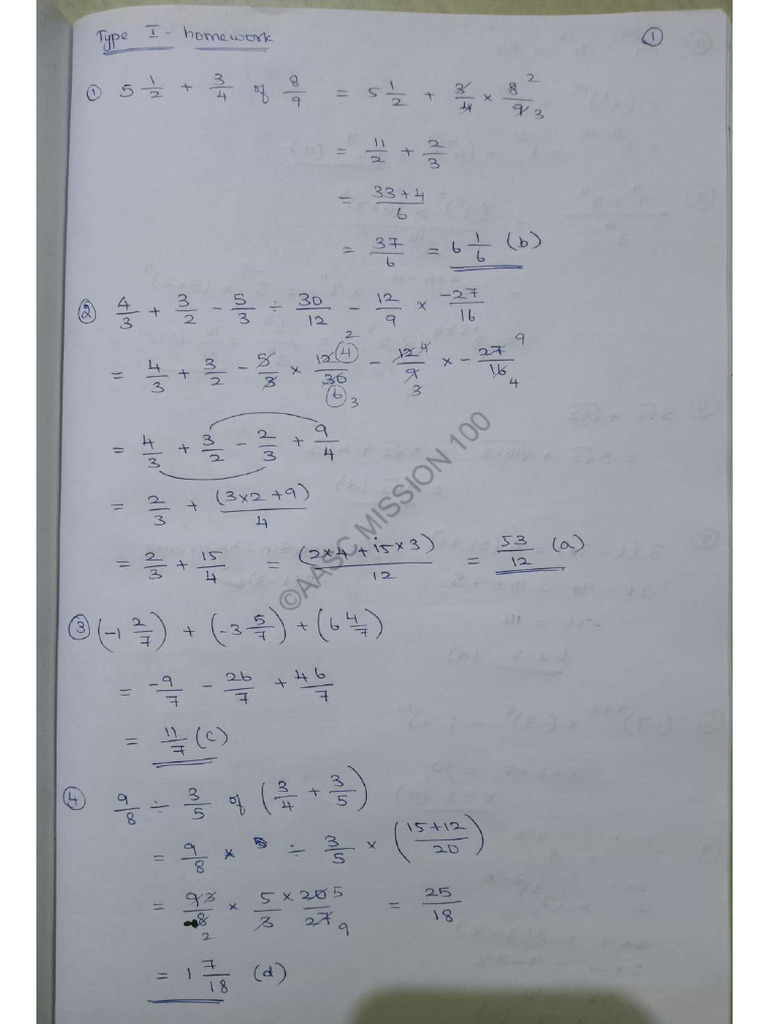 Type I - homework ①
① 5 1/2 + 3/4 of 8/9 = 5 1/2 + 3/4 × 8/9 2 3
= 11/2 + 2/3
= 33+4/6
= 37/6 = 6 1/6 (b)
② 4/3 + 3/2 - 5/3 ÷ 30/12 - 12/9 × -27/16
= 4/3 + 3/2 - 5/3 × 12/30 4 2 6 3 - 12/9 4 3 × - 27/16 9 4
= 4/3 + 3/2 - 2/3 + 9/4
= 2/3 + (3×2+9)/4
= 2/3 + 15/4 = (2×4+15×3)/12 = 53/12 (a)
©AASC MISSION 100
③ (-1 2/7) + (-3 5/7) + (6 4/7)
= -9/7 - 26/7 + 46/7
= 11/7 (c)
④ 9/8 ÷ 3/5 of (3/4 + 3/5)
= 9/8 × ÷ 3/5 × (15+12/20)
= 9/8 3 2 × 5/3 × 20/27 5 9 = 25/18
= 1 7/18 (d)